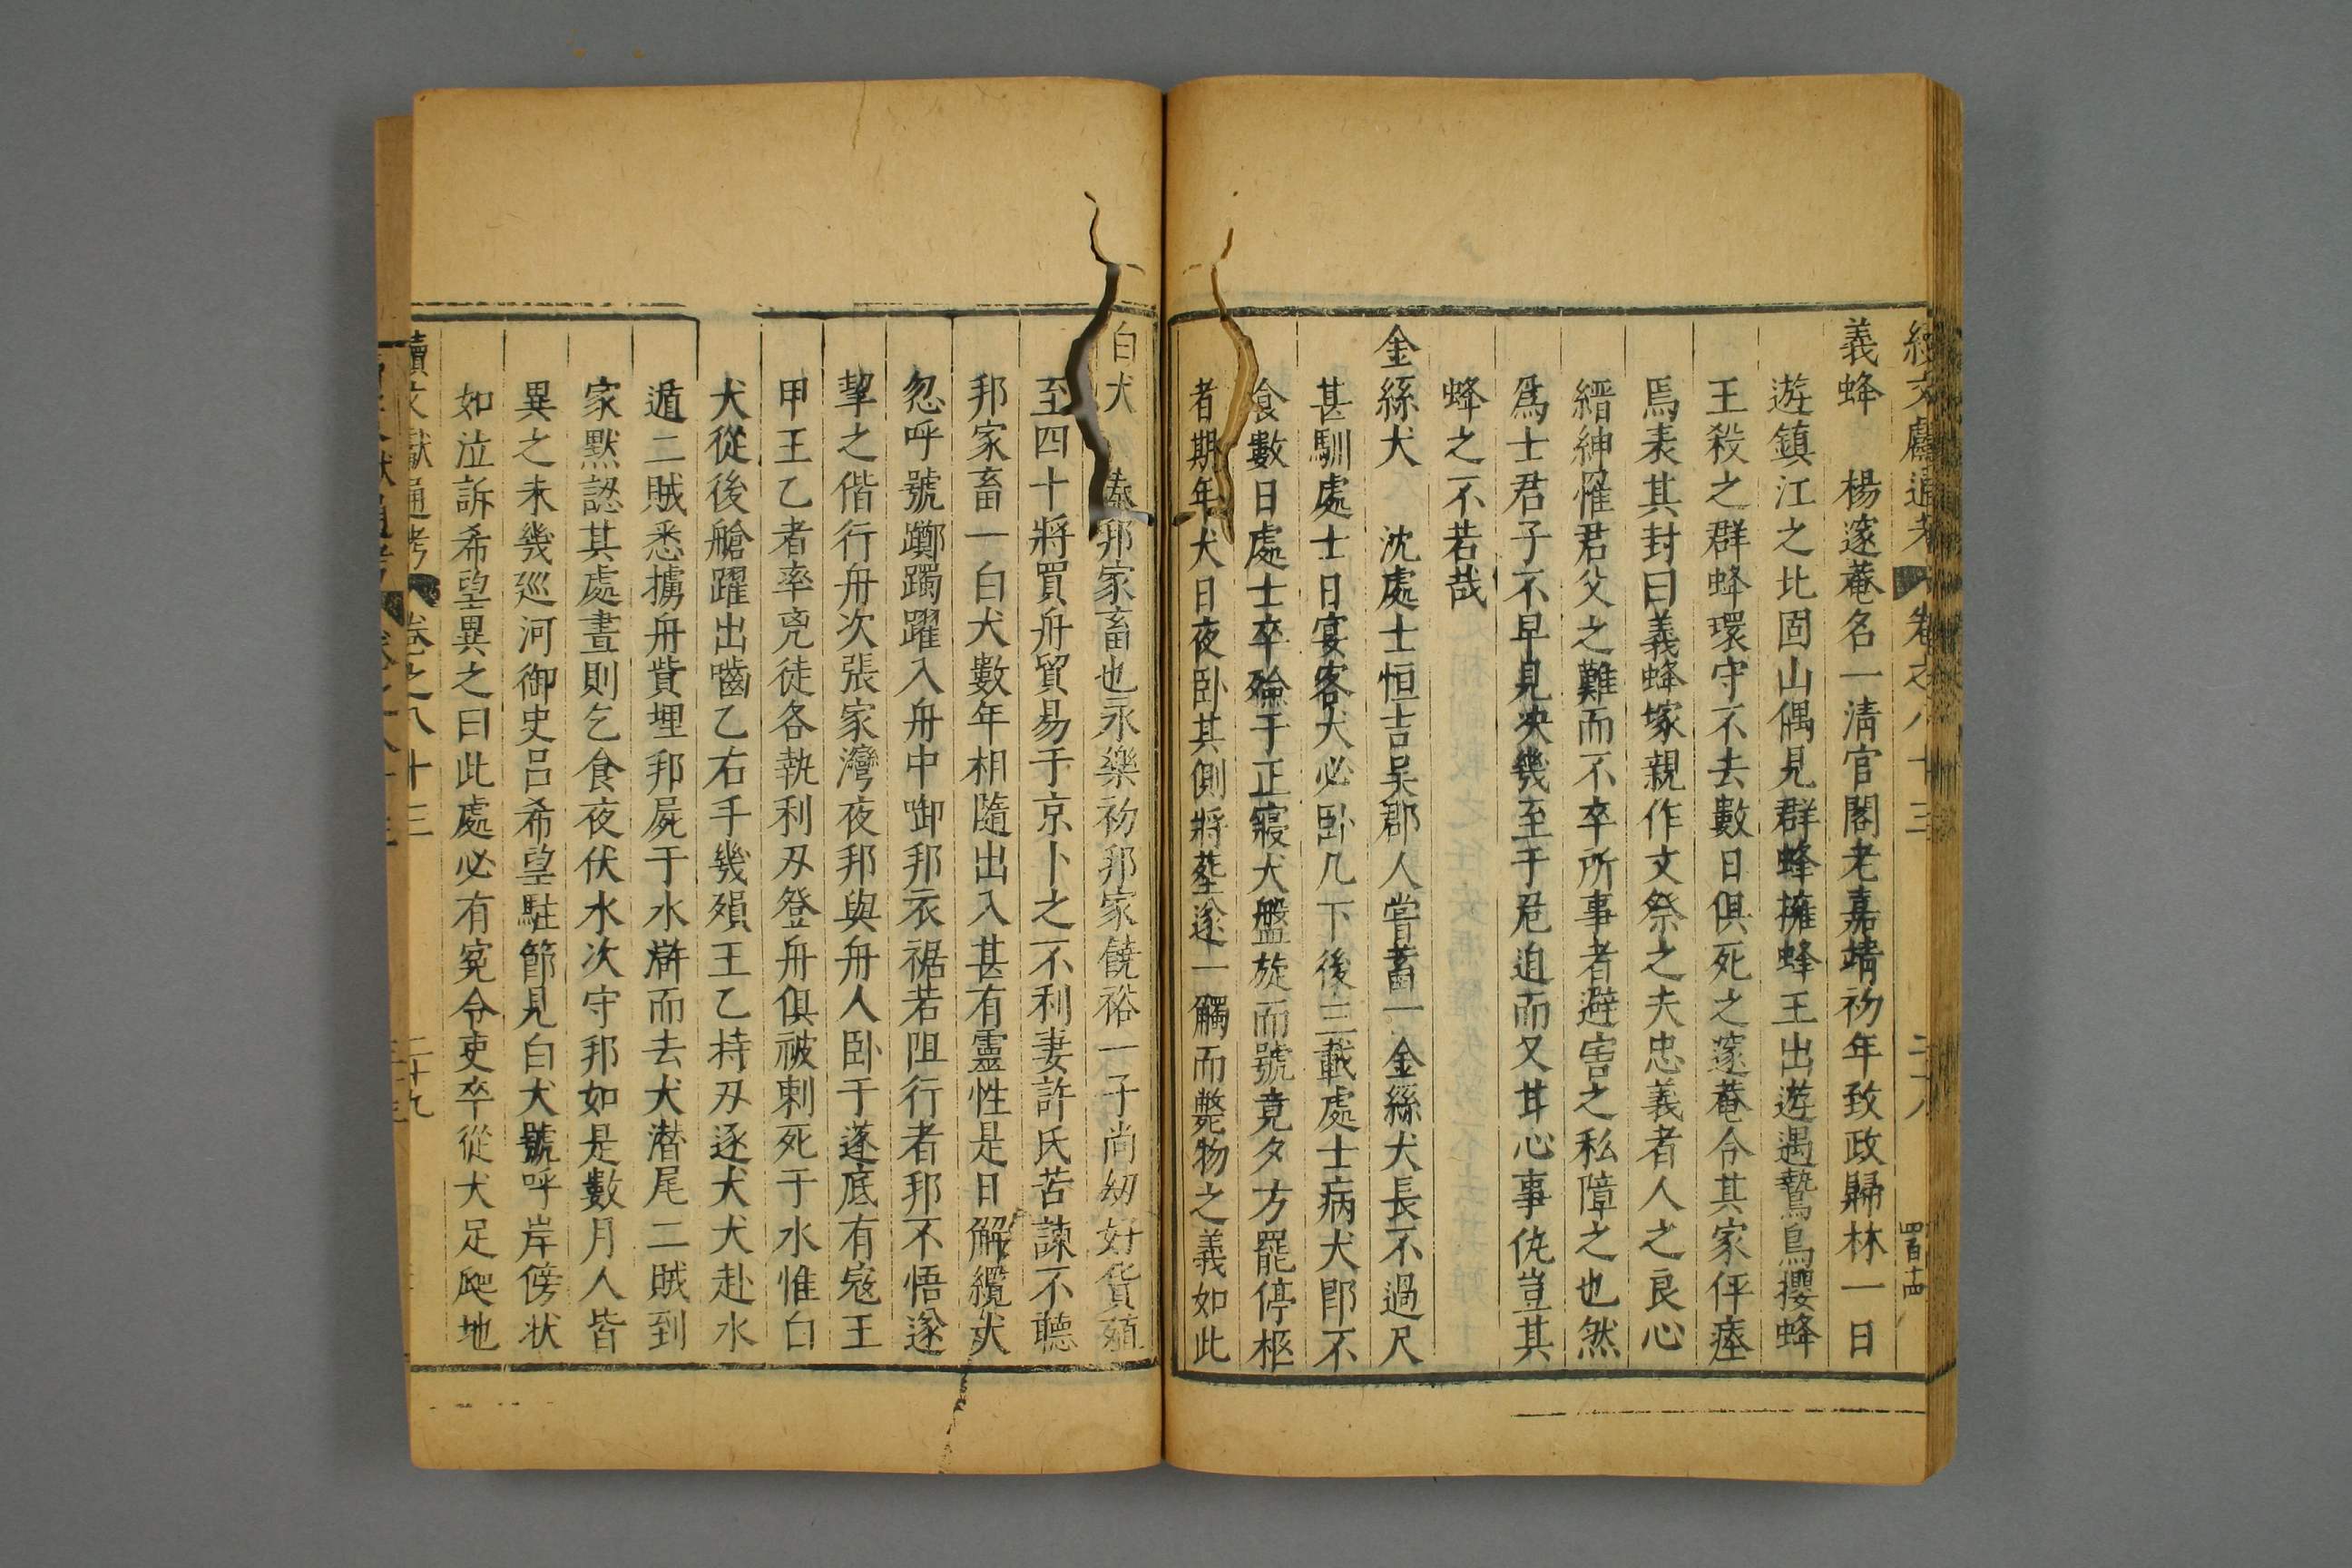 續文獻通考 卷之八十三 二十八 四百十四
義蜂 楊邃菴名一清官閣老嘉靖初年致政歸林一日
遊鎮江之北固山偶見群蜂擁蜂王出遊遇鷙鳥攫蜂
王殺之群蜂環守不去數日俱死之邃菴令其家伻瘞
焉表其封曰義蜂塚親作文祭之夫忠義者人之良心
縉紳罹君父之難而不卒所事者避害之私障之也然
爲士君子不早見决幾至于危迫而又其心事侘豈其
蜂之不若哉
金絲犬 沈處士恒吉吴郡人嘗蓄一金絲犬長不過尺
甚馴處士日宴客犬必卧几下後三載處士病犬即不
食數日處士卒殮于正寢犬盤旋而號竟夕方罷停柩
者期年犬日夜卧其側將塟遂一觸而斃物之義如此
白犬 邦家畜也永樂初邦家饒裕一子尚幼好貨殖
至四十將買舟貿易于京卜之不利妻許氏苦諫不聽
邦家畜一白犬數年相隨出入甚有靈性是日解纜犬
忽呼號躑躅躍入舟中啣邦衣裾若阻行者邦不悟遂
挈之偕行舟次張家灣夜邦與舟人卧于蓬底有寇王
甲王乙者率兇徒各執利刃登舟俱被刺死于水惟白
犬從後艙躍出嚙乙右手幾殞王乙持刃逐犬犬赴水
遁二賊悉擄舟貲埋邦屍于水滸而去犬潜尾二賊到
家默認其處晝則乞食夜伏水次守邦如是數月人皆
異之未幾廵河御史吕希望駐節見白犬號呼岸傍状
如泣訴希望異之曰此處必有寃令吏卒從犬足爬地
續文獻通考 卷之八十三 二十九